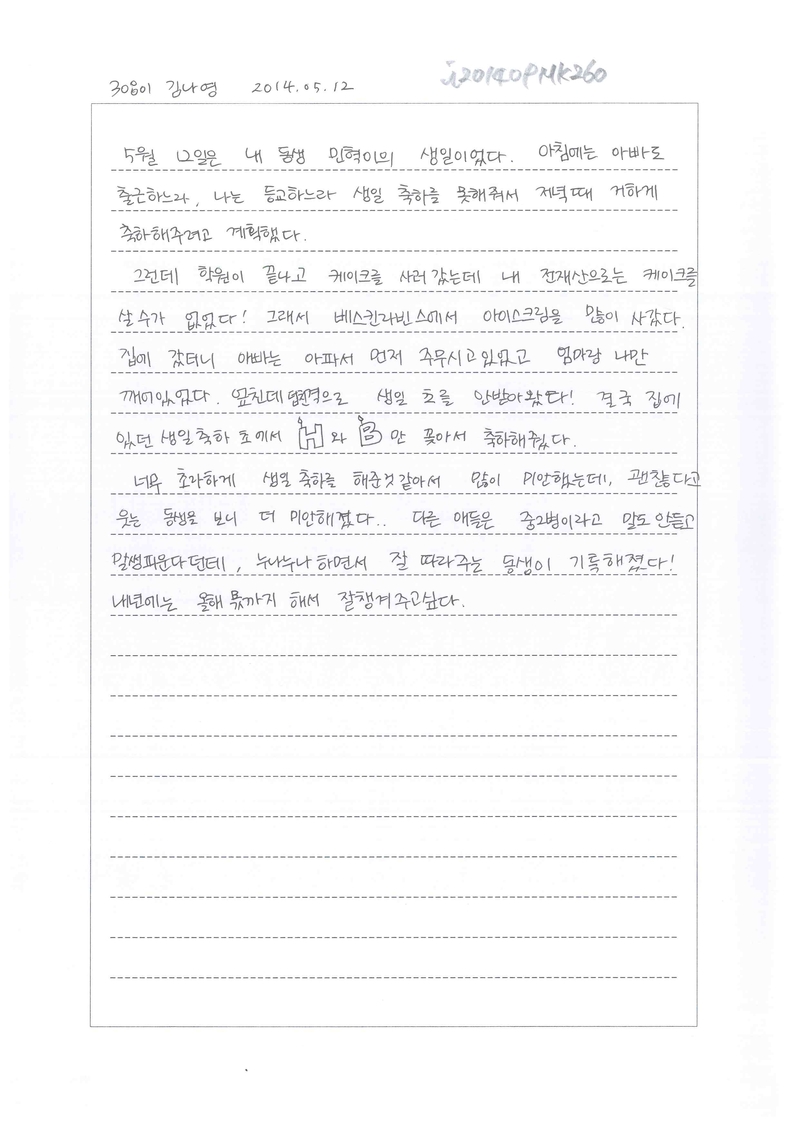 김나영 2014.05.12
5월 12일은 내 동생 민혁이의 생일이었다. 아침에는 아빠도
출근하느라, 나는 등교하느라 생일 축하를 못해줘서 저녁때 거하게
축하해주려고 계획했다.
그런데 학원이 끝나고 케이크를 사러 갔는데 내 전재산으로는 케이크를
살 수가 없었다! 그래서 베스킨라빈스에서 아이스크림을 많이 사갔다.
집에 갔더니 아빠는 아파서 먼저 주무시고있었고 엄마랑 나만
깨어있었다. 엎친데 덮친격으로 생일 초를 안받아왔다! 결국 집에
있던 생일축하 초에서 H와 B만 꽂아서 축하해줬다.
너무 초라하게 생일 축하를 해준것같아서 많이 미안했는데, 괜찮다고
웃는 동생을 보니 더 미안해졌다.. 다른 애들은 중2병이라고 말도 안듣고
말썽피운다던데, 누나누나 하면서 잘 따라주는 동생이 기특해졌다!
내년에는 올해 몫까지 해서 잘챙겨주고싶다.